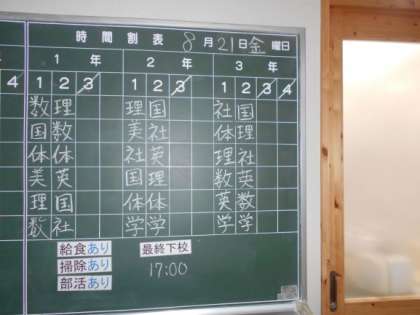 時間割表 8月21日金曜日
1年 2年 3年
4 1 2 3 1 2 3 1 2 3 4
数 理 理 国 社 国
国 数 美 社 体 理
体 体 社 英 理 社
美 英 国 理 数 英
理 国 体 体 英 数
数 社 学 学 学 学
給食あり 最終下校
掃除あり 17:00
部活あり